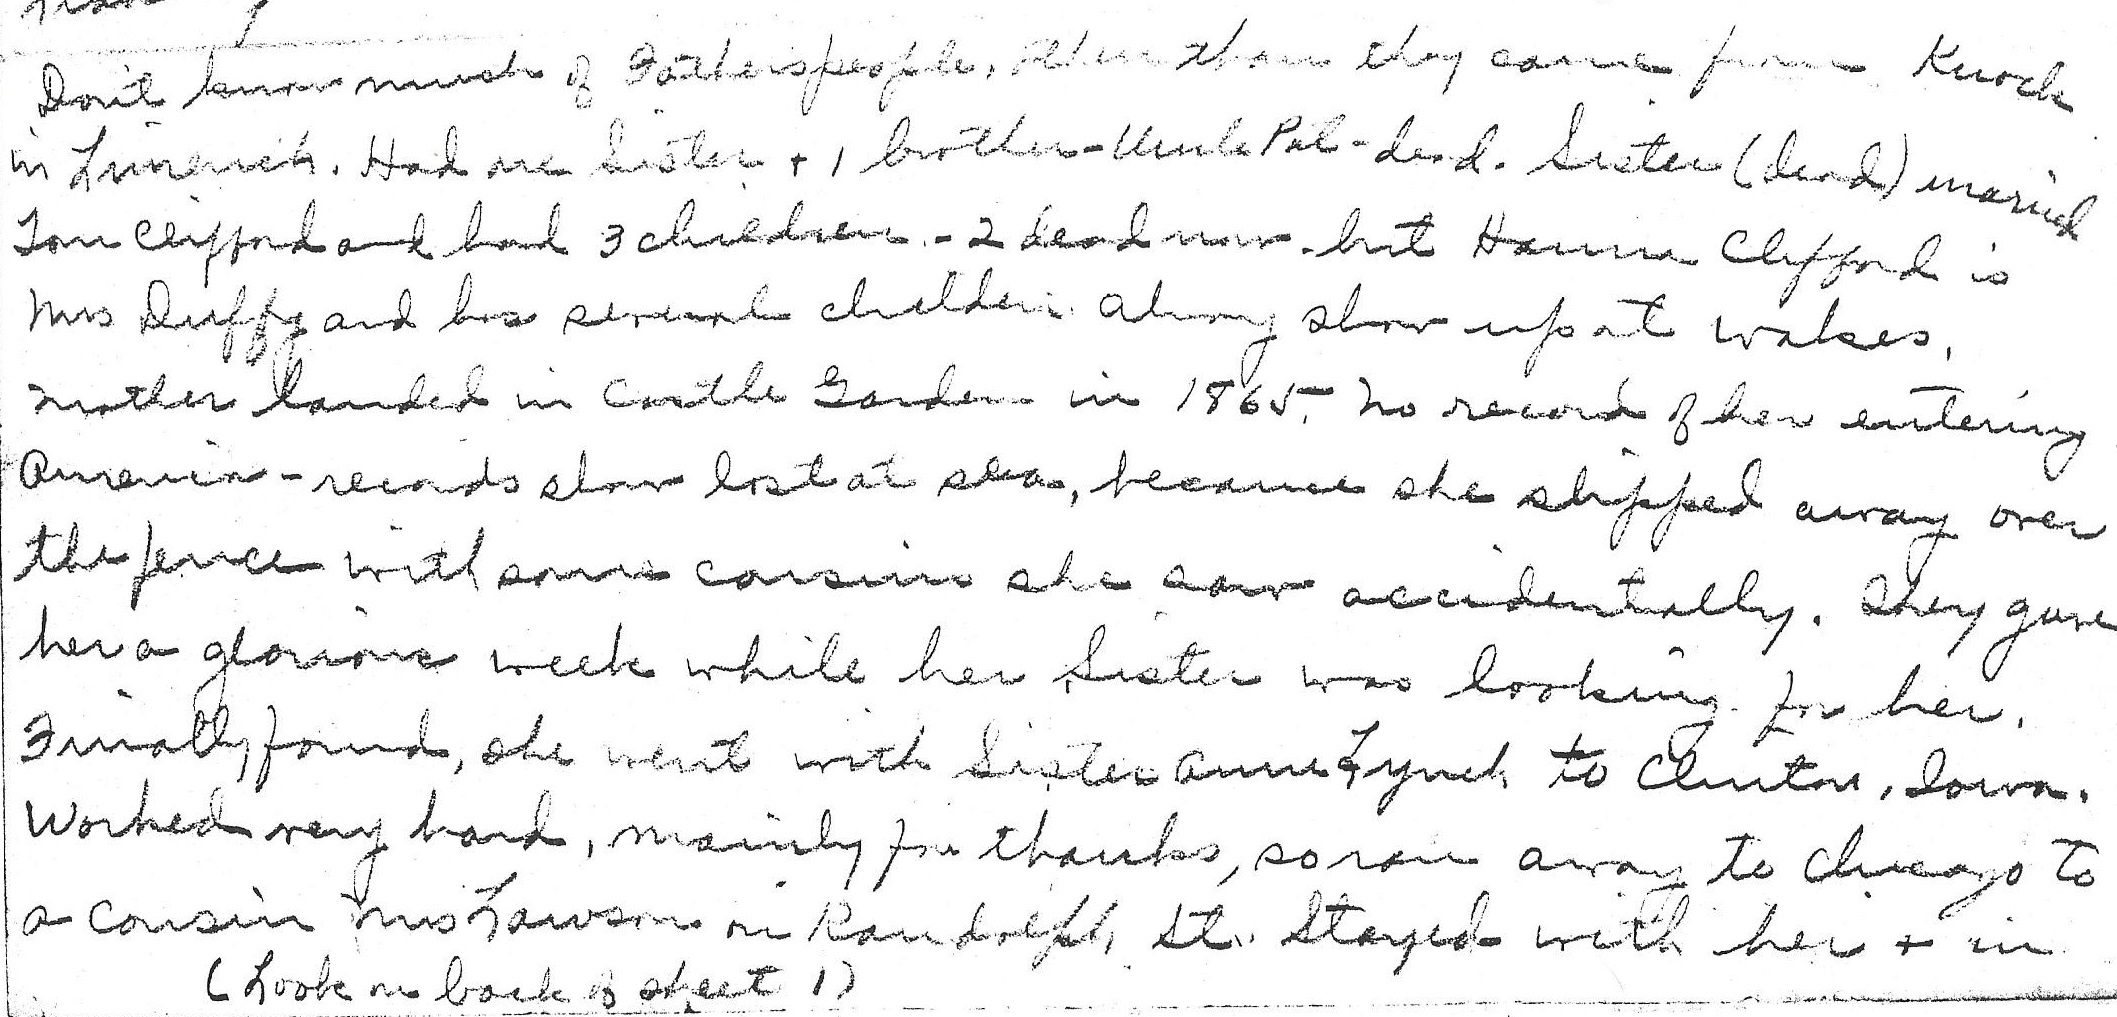 Don't know much of Fathers people, other than they came from Knock
in Limerick. Had one Sister + 1 brother - Uncle Pat - dead. Sister (dead) married
Tom Clifford and had 3 children - 2 dead now - but Hanna Clifford is
Mrs Duffy and has several children. Always show up at wakes.
Mother landed in Castle Garden in 1865. No record of her entering
America - records show lost at sea, because she slipped away over
the fence with some cousins she saw accidentally. They gave
her a glorious week while her Sister was looking for her.
Finally found, she went with Sister Anne Lynch to Clinton, Iowa.
Worked very hard, mainly for thanks, so ran away to Chicago to
a cousin Mrs Lawson on Randolph St. Stayed with her + in
(Look on back of sheet 1)